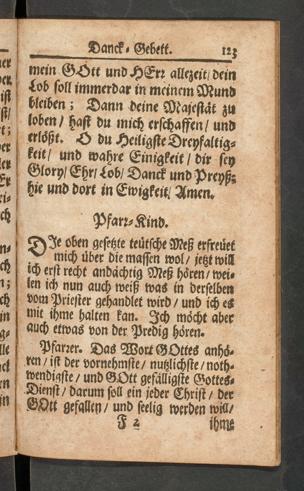 Danck-Gebett. 123
mein GOtt und HErr allezeit/ dein
Lob soll immerdar in meinem Mund
bleiben; Dann deine Majestät zu
loben/ hast du mich erschaffen/ und
erlößt. O du Heiligste Dreyfaltig-
keit/ und wahre Einigkeit/ dir sey
Glory/ Ehr/ Lob/ Danck und Preyß:
hie und dort in Ewigkeit/ Amen.
Pfarr-Kind.
DIe oben gesetzte teütsche Meß erfreuet
mich über die massen wol/ jetzt will
ich erst recht andächtig Meß hören/ wei-
len ich nun auch weiß was in derselben
vom Priester gehandlet wird/ und ich es
mit ihme halten kan. Ich möcht aber
auch etwas von der Predig hören.
Pfarrer. Das Wort GOttes anhö-
ren/ ist der vornehmste/ nutzlichste/ noth-
wendigste/ und GOtt gefälligste Gottes-
Dienst/ darum soll ein jeder Christ/ der
GOtt gefallen/ und seelig werden will/
F 2 ihme